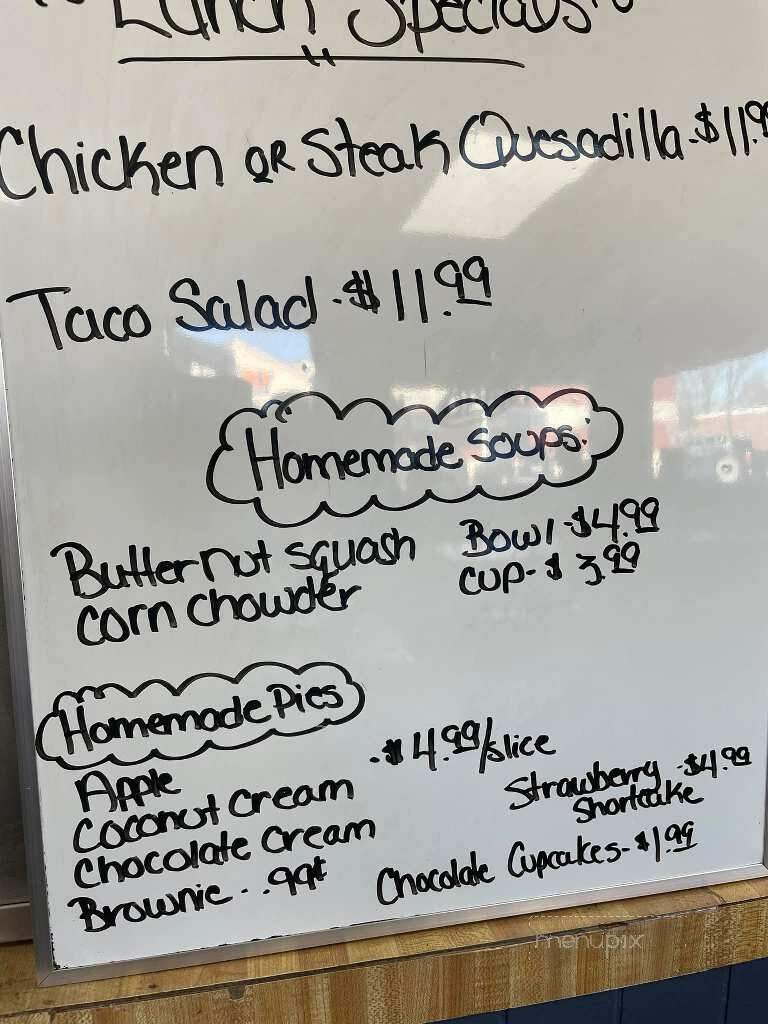 Lunch Specials
Chicken OR Steak Quesadilla - $11.99
Taco Salad - $11.99
Homemade Soups:
Butternut squash
corn chowder
Bowl - $4.99
CUP - $3.99
Homemade Pies
- $4.99/slice
Apple
Coconut cream
Chocolate cream
Brownie - .99¢
Strawberry - $4.99
Shortcake
Chocolate Cupcakes - $1.99
menupix